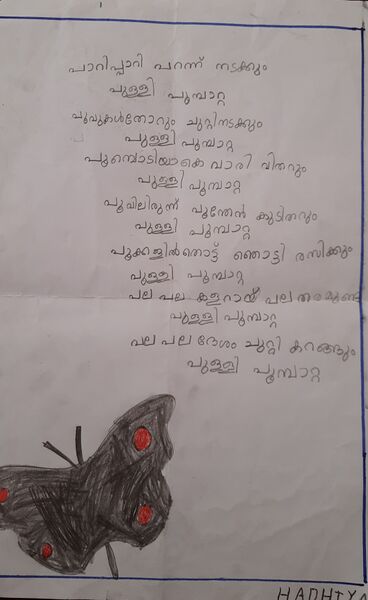 പാറിപ്പാറി പറന്ന് നടക്കും
പുള്ളി പൂമ്പാറ്റ
പൂവുകൾതോറും ചുറ്റിനടക്കും
പുള്ളി പൂമ്പാറ്റ
പൂമ്പൊടിയാകെ വാരി വിതറും
പുള്ളി പൂമ്പാറ്റ
പൂവിലിരുന്ന് പൂന്തേൻ കുടിതറും
പുള്ളി പൂമ്പാറ്റ
പൂക്കളിൽതൊട്ട് ഞൊട്ടി രസിക്കും
പുള്ളി പൂമ്പാറ്റ
പല പല കളറായ് പല തരമുണ്ട്
പുള്ളി പൂമ്പാറ്റ
പല പല ദേശം ചുറ്റി കറങ്ങും
പുള്ളി പൂമ്പാറ്റ